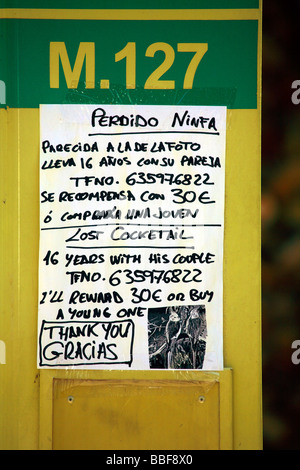 M.127
PERDIDO NINFA
PARECIDA A LA DE LA FOTO
LLEVA 16 AÑOS CON SU PAREJA
TFNO. 635976822
SE RECOMPENSA CON 30€
Ó COMPRARÍA UNA JOVEN
LOST COCKETAIL
16 YEARS WITH HIS COUPLE
TFNO. 635976822
I'LL REWARD 30€ OR BUY
A YOUNG ONE
THANK YOU
GRACIAS
alamy
Image ID: BBF8X0
www.alamy.com